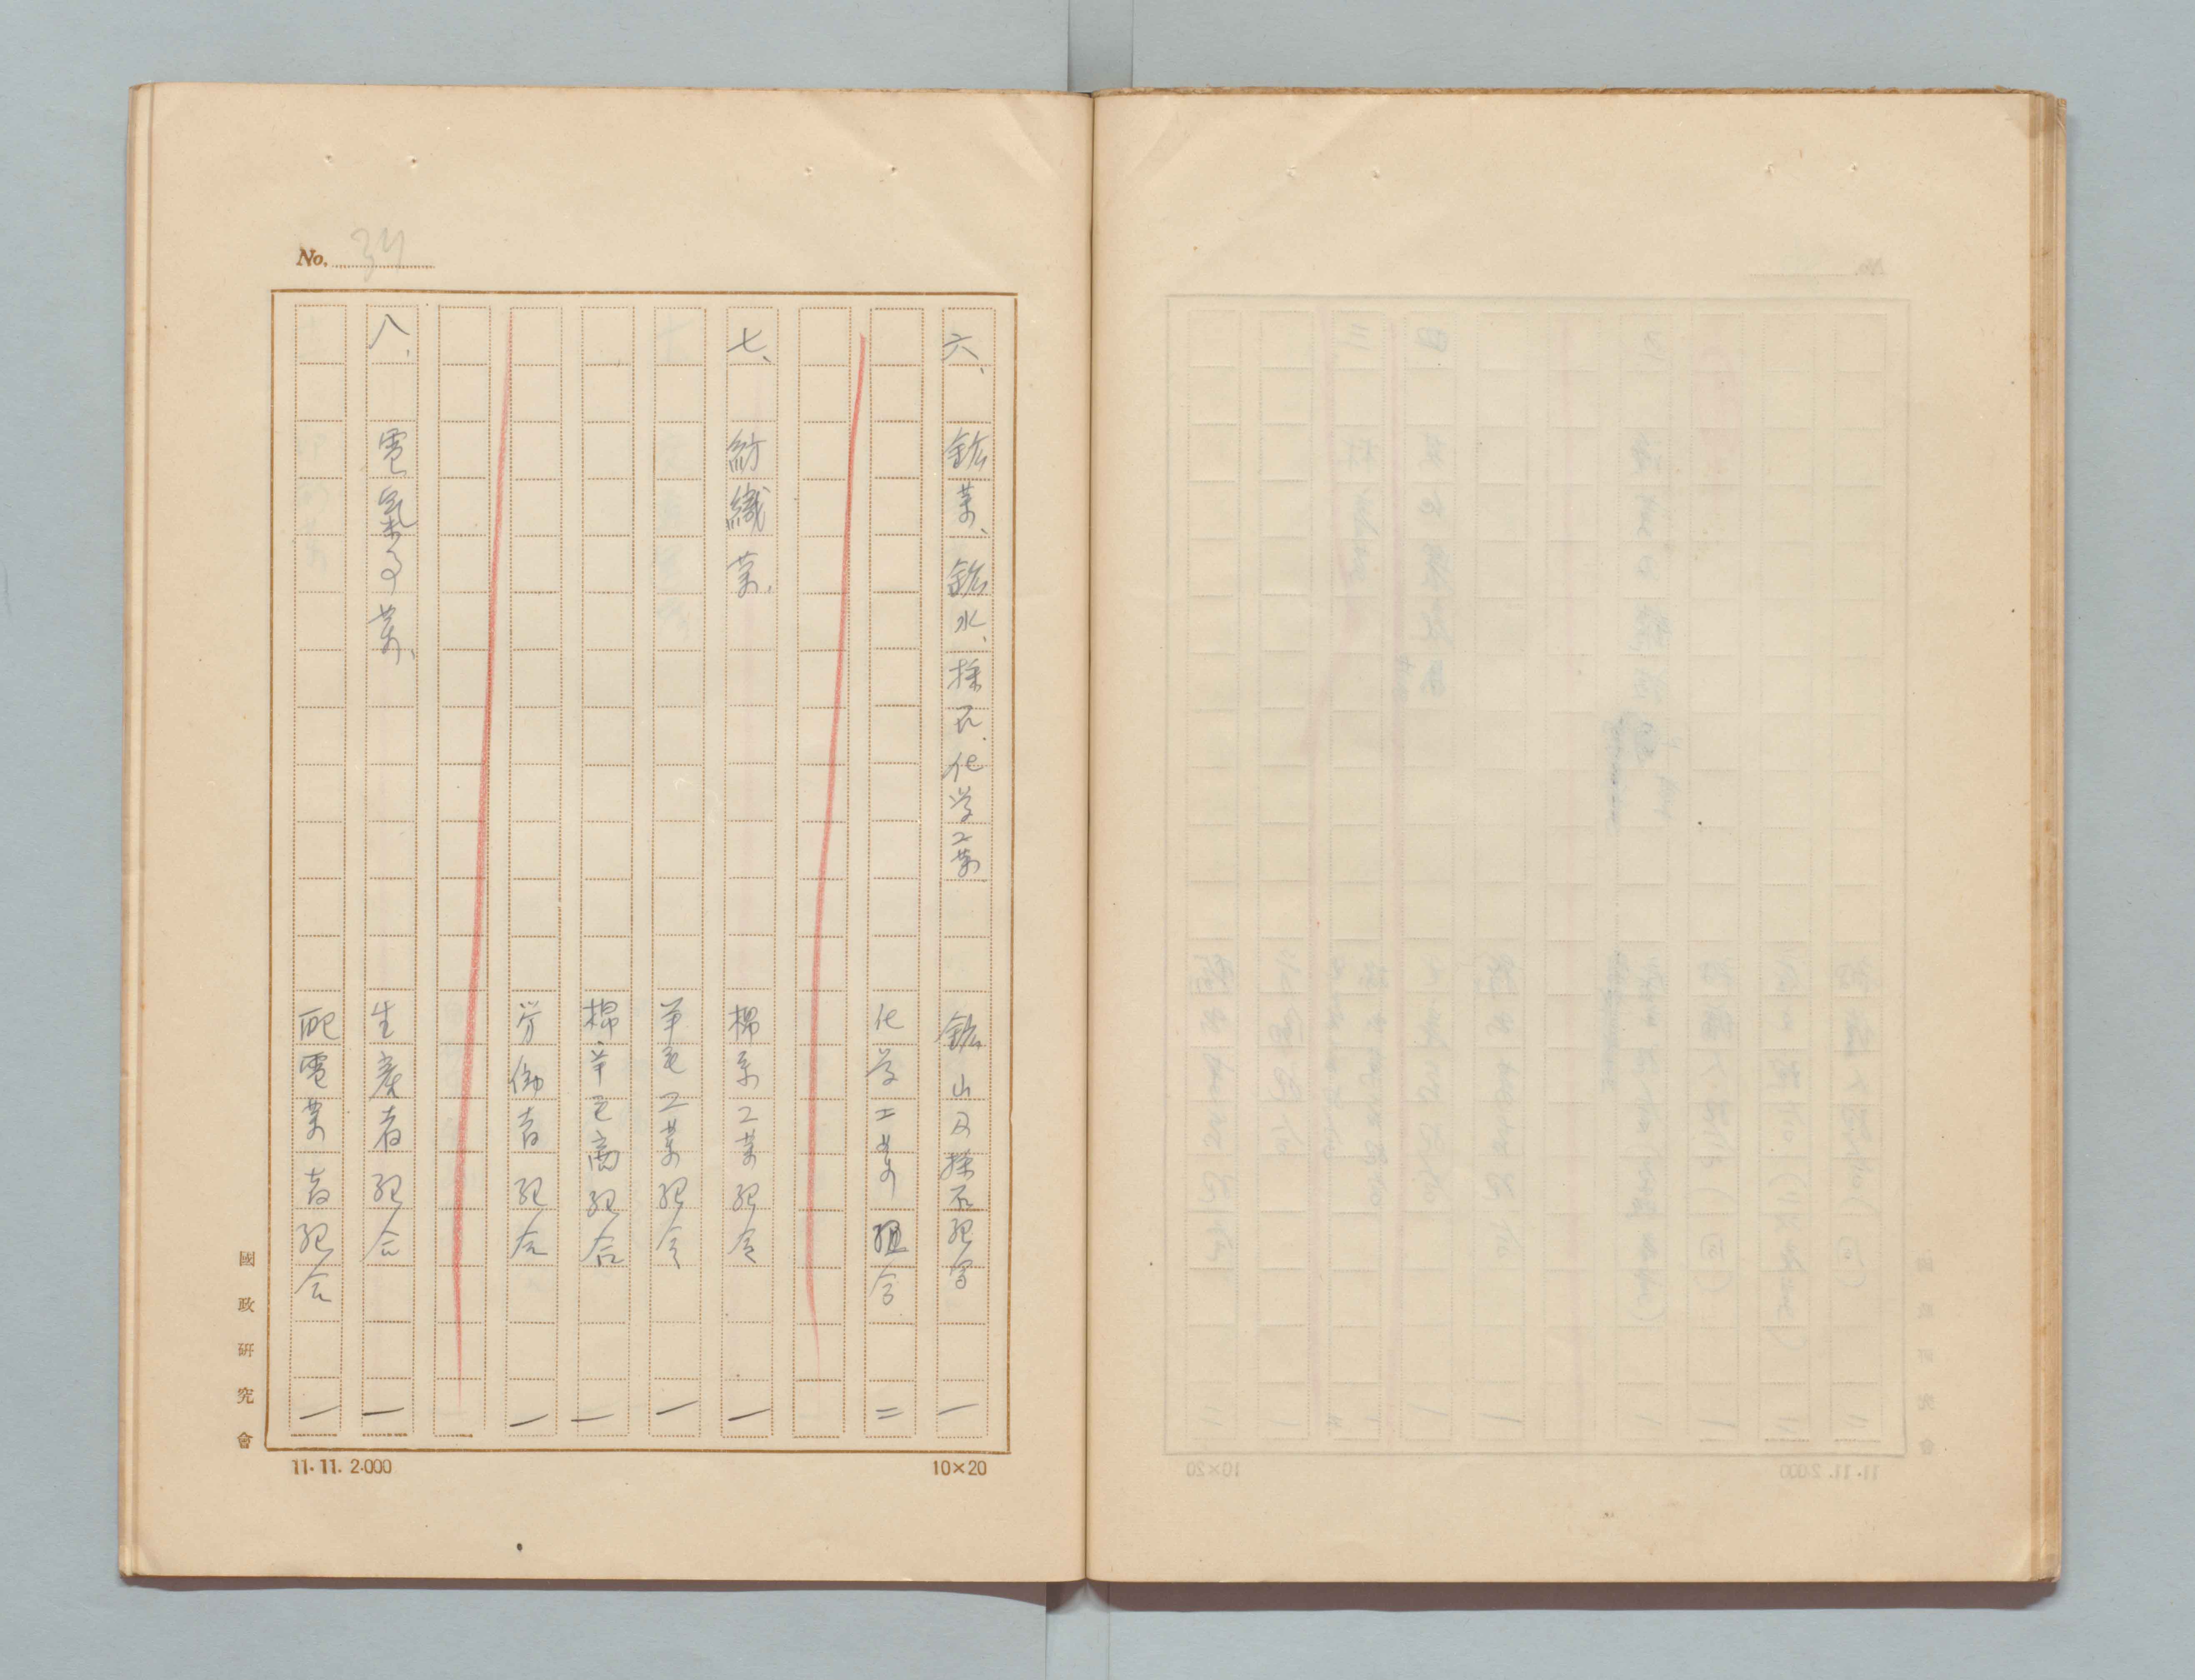 No. 34
六、鉱業、鉱水、採石、化学工業　鉱山及採石組合　一
化学工業組合　二
七、紡織業、　棉糸工業組合　一
羊毛工業組合　一
棉、羊毛商組合　一
労働者組合　一
八、電氣事業、　生産者組合　一
配電業者組合　一
國政研究會
11.11. 2.000
10×20